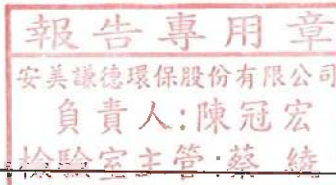 報告專用章
安美謙德環保股份有限公司
負責人:陳冠宏
檢驗室主管:蔡 繞